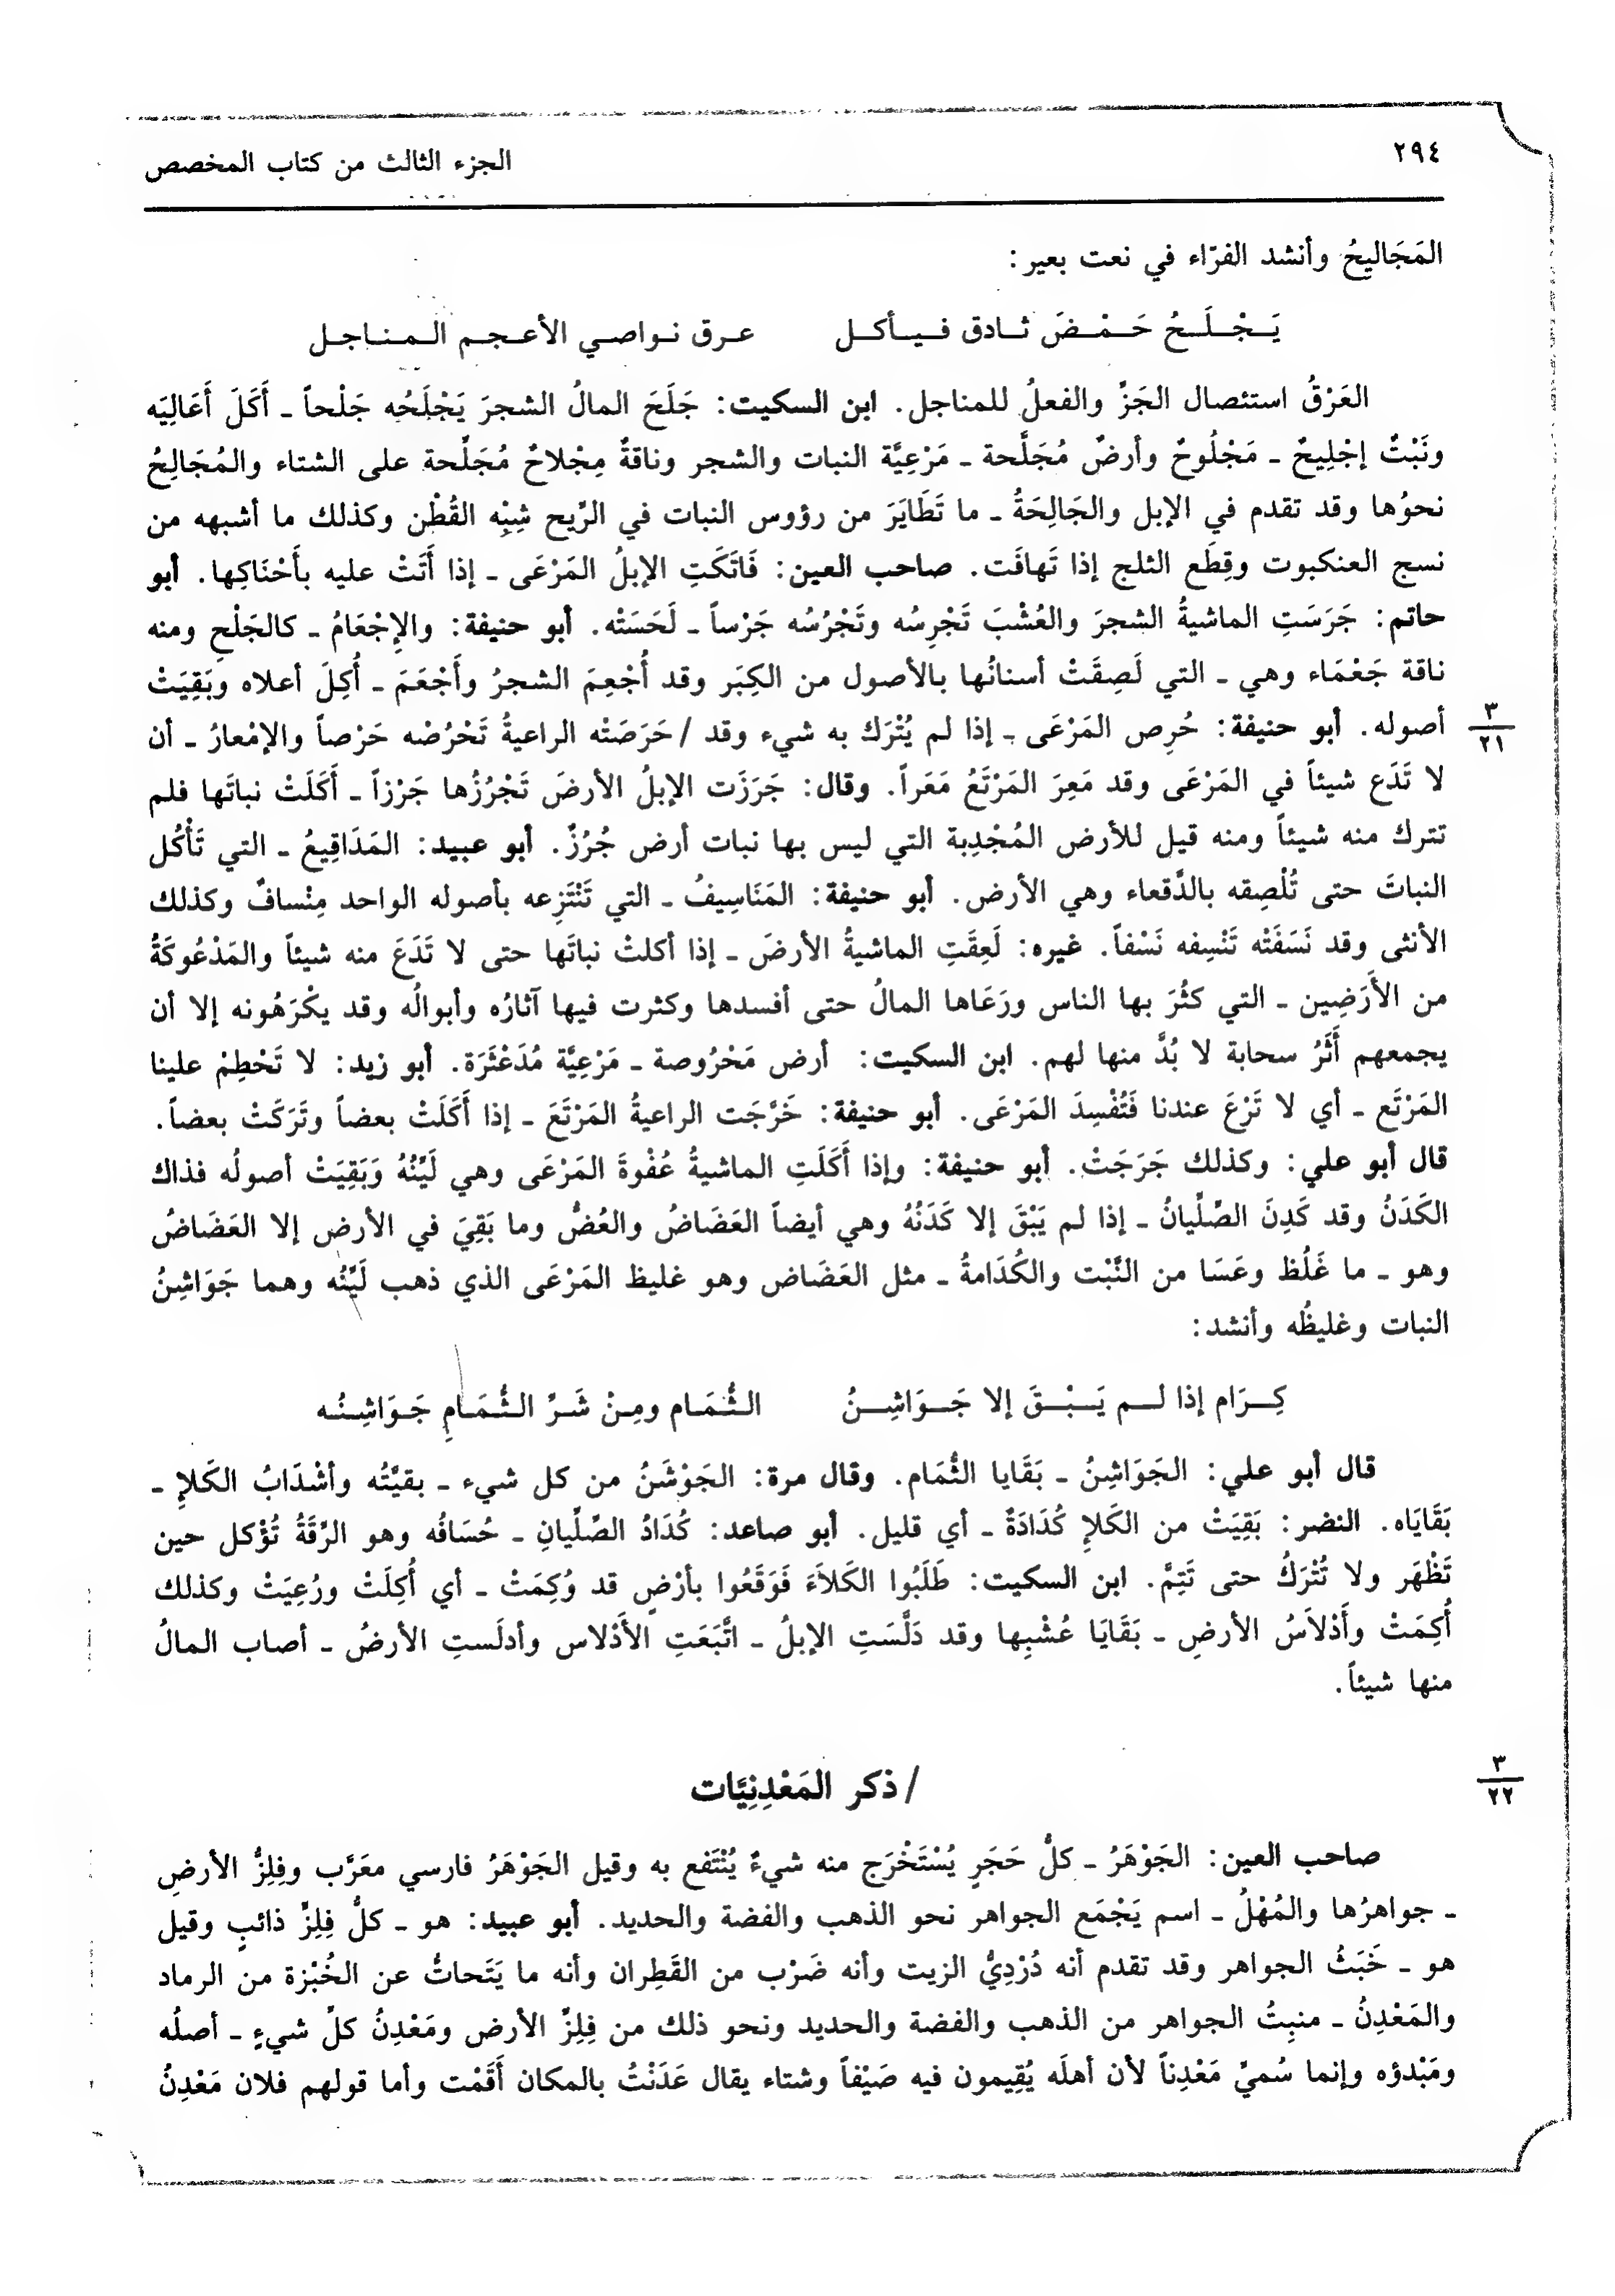 ٢٩٤
الجزء الثالث من كتاب المخصص
المَجَاليِحُ وأنشد الفرّاء في نعت بعير:
يَـجْـلَـحُ حَـمْـضَ ثـادق فـيـأكـل عـرق نـواصـي الأعـجـم الـمـنـاجـل
العَرْقُ استئصال الجَزِّ والفعلُ للمناجل. ابن السكيت: جَلَحَ المالُ الشجرَ يَجْلَحُه جَلْحاً ـ أَكَلَ أَعَالِيَه
ونَبْتٌ إجْلِيحٌ ـ مَجْلُوحٌ وأرضٌ مُجَلَّحة ـ مَرْعِيَّة النبات والشجر وناقةٌ مِجْلاحٌ مُجَلِّحة على الشتاء والمُجَالِحُ
نحوُها وقد تقدم في الإبل والجَالِحَةُ ـ ما تَطَايَرَ من رؤوس النبات في الرِّيح شِبْه القُطْن وكذلك ما أشبهه من
نسج العنكبوت وقِطَع الثلج إذا تَهافَت. صاحب العين: فَاتَكَتِ الإبلُ المَرْعَى ـ إذا أَتَتْ عليه بأَحْنَاكِها. أبو
حاتم: جَرَسَتِ الماشيةُ الشجرَ والعُشْبَ تَجْرِسُه وتَجْرُسُه جَرْساً ـ لَحَسَتْه. أبو حنيفة: والإِجْعَامُ ـ كالجَلْحِ ومنه
ناقة جَعْمَاء وهي ـ التي لَصِقَتْ أسنانُها بالأصول من الكِبَر وقد أُجْعِمَ الشجرُ وأَجْعَمَ ـ أُكِلَ أعلاه وبَقِيَتْ
أصوله. أبو حنيفة: حُرِص المَرْعَى ـ إذا لم يُتْرَك به شيء وقد / حَرَصَتْه الراعيةُ تَحْرُصُه حَرْصاً والإمْعارُ ـ أن
٣
٢١
لا تَدَع شيئاً في المَرْعَى وقد مَعِرَ المَرْتَعُ مَعَراً. وقال: جَرَزَت الإبلُ الأرضَ تَجْرُزُها جَرْزاً ـ أَكَلَتْ نباتَها فلم
تترك منه شيئاً ومنه قيل للأرض المُجْدِبة التي ليس بها نبات أرض جُرُزٌ. أبو عبيد: المَدَاقِيعُ ـ التي تَأْكُل
النباتَ حتى تُلْصِقه بالدَّقعاء وهي الأرض. أبو حنيفة: المَنَاسِيفُ ـ التي تَنْتَزِعه بأصوله الواحد مِنْسافٌ وكذلك
الأنثى وقد نَسَفَتْه تَنْسِفه نَسْفاً. غيره: لَعِقَتِ الماشيةُ الأرضَ ـ إذا أكلتْ نباتَها حتى لا تَدَعَ منه شيئاً والمَدْعُوكَةُ
من الأَرَضِين ـ التي كثُرَ بها الناس ورَعَاها المالُ حتى أفسدها وكثرت فيها آثارُه وأبوالُه وقد يكْرَهُونه إلا أن
يجمعهم أَثَرُ سحابة لا بُدَّ منها لهم. ابن السكيت: أرض مَحْرُوصة ـ مَرْعِيَّة مُدَعْثَرَة. أبو زيد: لا تَحْطِمْ علينا
المَرْتَع ـ أي لا تَرْعَ عندنا فَتُفْسِدَ المَرْعَى. أبو حنيفة: خَرَّجَت الراعيةُ المَرْتَعَ ـ إذا أَكَلَتْ بعضاً وتَرَكَتْ بعضاً.
قال أبو علي: وكذلك جَرَجَتْ. أبو حنيفة: وإذا أَكَلَتِ الماشيةُ عُفْوةَ المَرْعَى وهي لَيِّنُهُ وَبَقِيَتْ أصولُه فذاك
الكَدَنُ وقد كَدِنَ الصِّلِّيانُ ـ إذا لم يَبْقَ إلا كَدَنُهُ وهي أيضاً العَضَاضُ والعُضُّ وما بَقِيَ في الأرض إلا العَضَاضُ
وهو ـ ما غَلُظ وعَسَا من النَّبْت والكُدَامةُ ـ مثل العَضَاض وهو غليظ المَرْعَى الذي ذهب لَيِّنُه وهما جَوَاشِنُ
النبات وغليظُه وأنشد:
كِـرَام إذا لـم يَـبْـقَ إلا جَـوَاشِـنُ الـثُّـمَـام ومِـنْ شَـرِّ الـثُّـمَـامِ جَـوَاشِـنُـه
قال أبو علي: الجَوَاشِنُ ـ بَقَايا الثُّمَام. وقال مرة: الجَوْشَنُ من كل شيء ـ بقيَّتُه وأشْدَابُ الكَلإِ ـ
بَقَايَاه. النضر: بَقِيَتْ من الكَلإِ كُدَادَةٌ ـ أي قليل. أبو صاعد: كُدَادُ الصِّلِّيانِ ـ حُسَافُه وهو الرِّقَةُ تُؤْكل حين
تَظْهَر ولا تُتْرَكُ حتى تَتِمَّ. ابن السكيت: طَلَبُوا الكَلأَ فَوَقَعُوا بأرْضٍ قد وُكِمَتْ ـ أي أُكِلَتْ ورُعِيَتْ وكذلك
أُكِمَتْ وأَدْلاَسُ الأرضِ ـ بَقَايَا عُشْبِها وقد دَلَّسَتِ الإبلُ ـ اتَّبَعَتِ الأَدْلاس وأدلَستِ الأرضُ ـ أصاب المالُ
منها شيئاً.
/ ذكر المَعْدِنِيَّات
٣
٢٢
صاحب العين: الجَوْهَرُ ـ كلُّ حَجَرٍ يُسْتَخْرَج منه شيءٌ يُنْتَفع به وقيل الجَوْهَرُ فارسي معَرَّب وفِلِزُّ الأرضِ
ـ جواهرُها والمُهْلُ ـ اسم يَجْمَع الجواهر نحو الذهب والفضة والحديد. أبو عبيد: هو ـ كلُّ فِلِزِّ ذائبٍ وقيل
هو ـ خَبَثُ الجواهر وقد تقدم أنه دُرْدِيُّ الزيت وأنه ضَرْب من القَطِران وأنه ما يَتَحاتُّ عن الخُبْزة من الرماد
والمَعْدِنُ ـ منبِتُ الجواهر من الذهب والفضة والحديد ونحو ذلك من فِلِزِّ الأرض ومَعْدِنُ كلِّ شيءٍ ـ أصلُه
ومَبْدؤه وإنما سُميِّ مَعْدِناً لأن أهلَه يُقِيمون فيه صَيْفاً وشتاء يقال عَدَنْتُ بالمكان أَقَمْت وأما قولهم فلان مَعْدِنُ